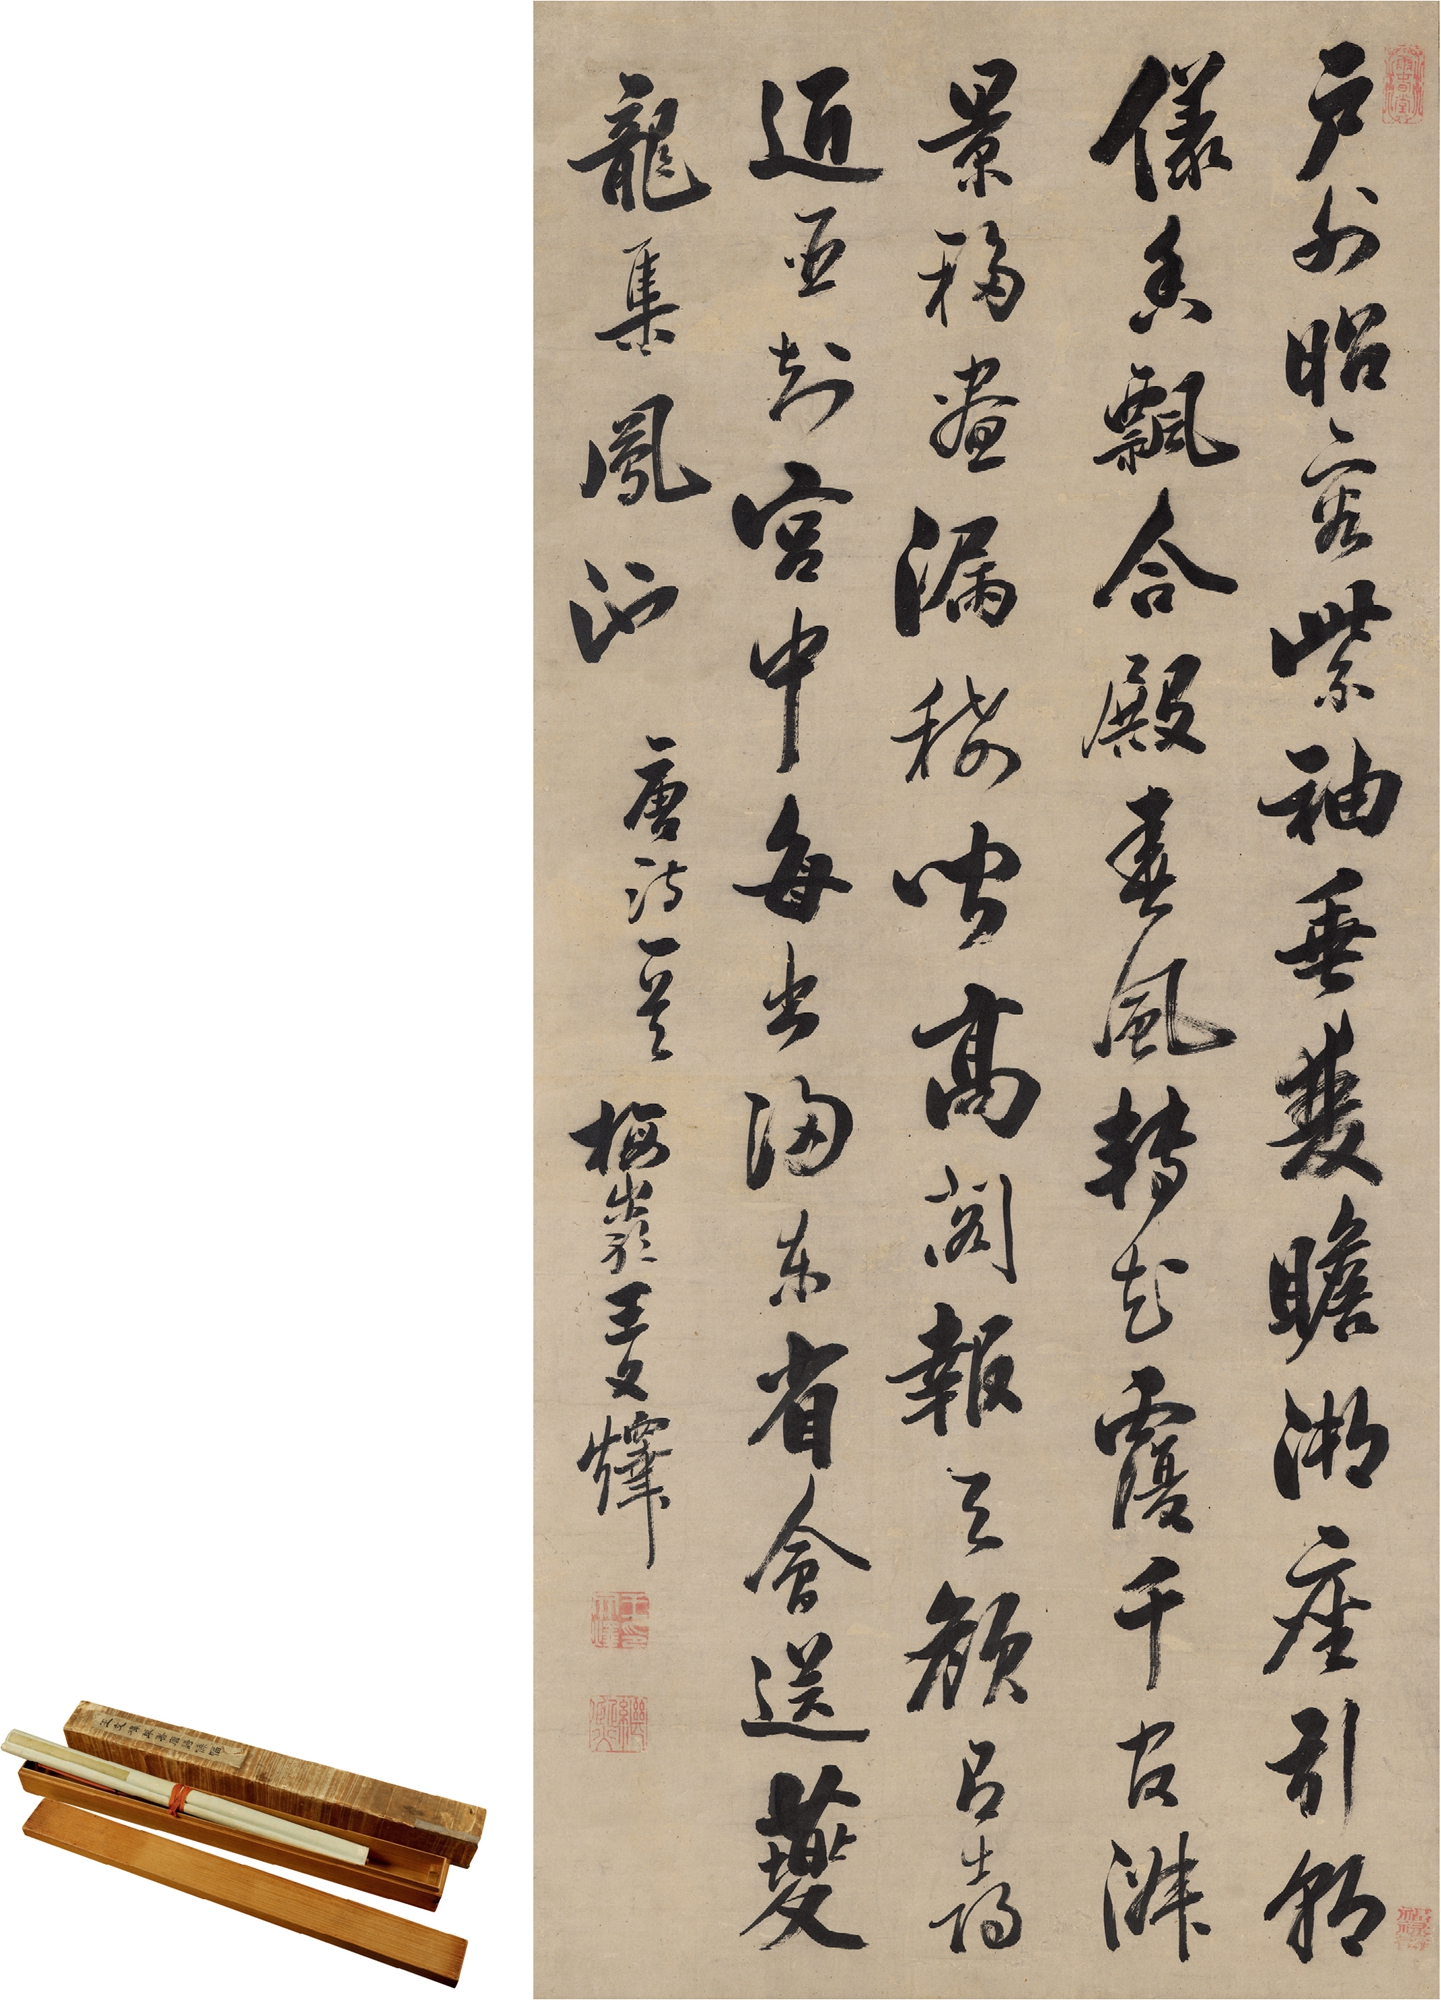 戶外昭容紫袖垂雙瞻御座引朝
儀香飄合殿春風轉花覆千官淑
景移晝漏稀聞高閣報天顏有喜
近臣知宮中每出歸東省會送夔
龍集鳳池 唐詩一首 梅嶺王文燁